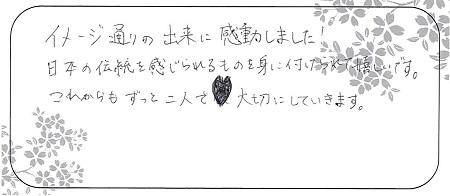 イメージ通りの出来に感動しました!
日本の伝統を感じられるものを身に付けられて嬉しいです。
これからもずっと二人で大切にしていきます。